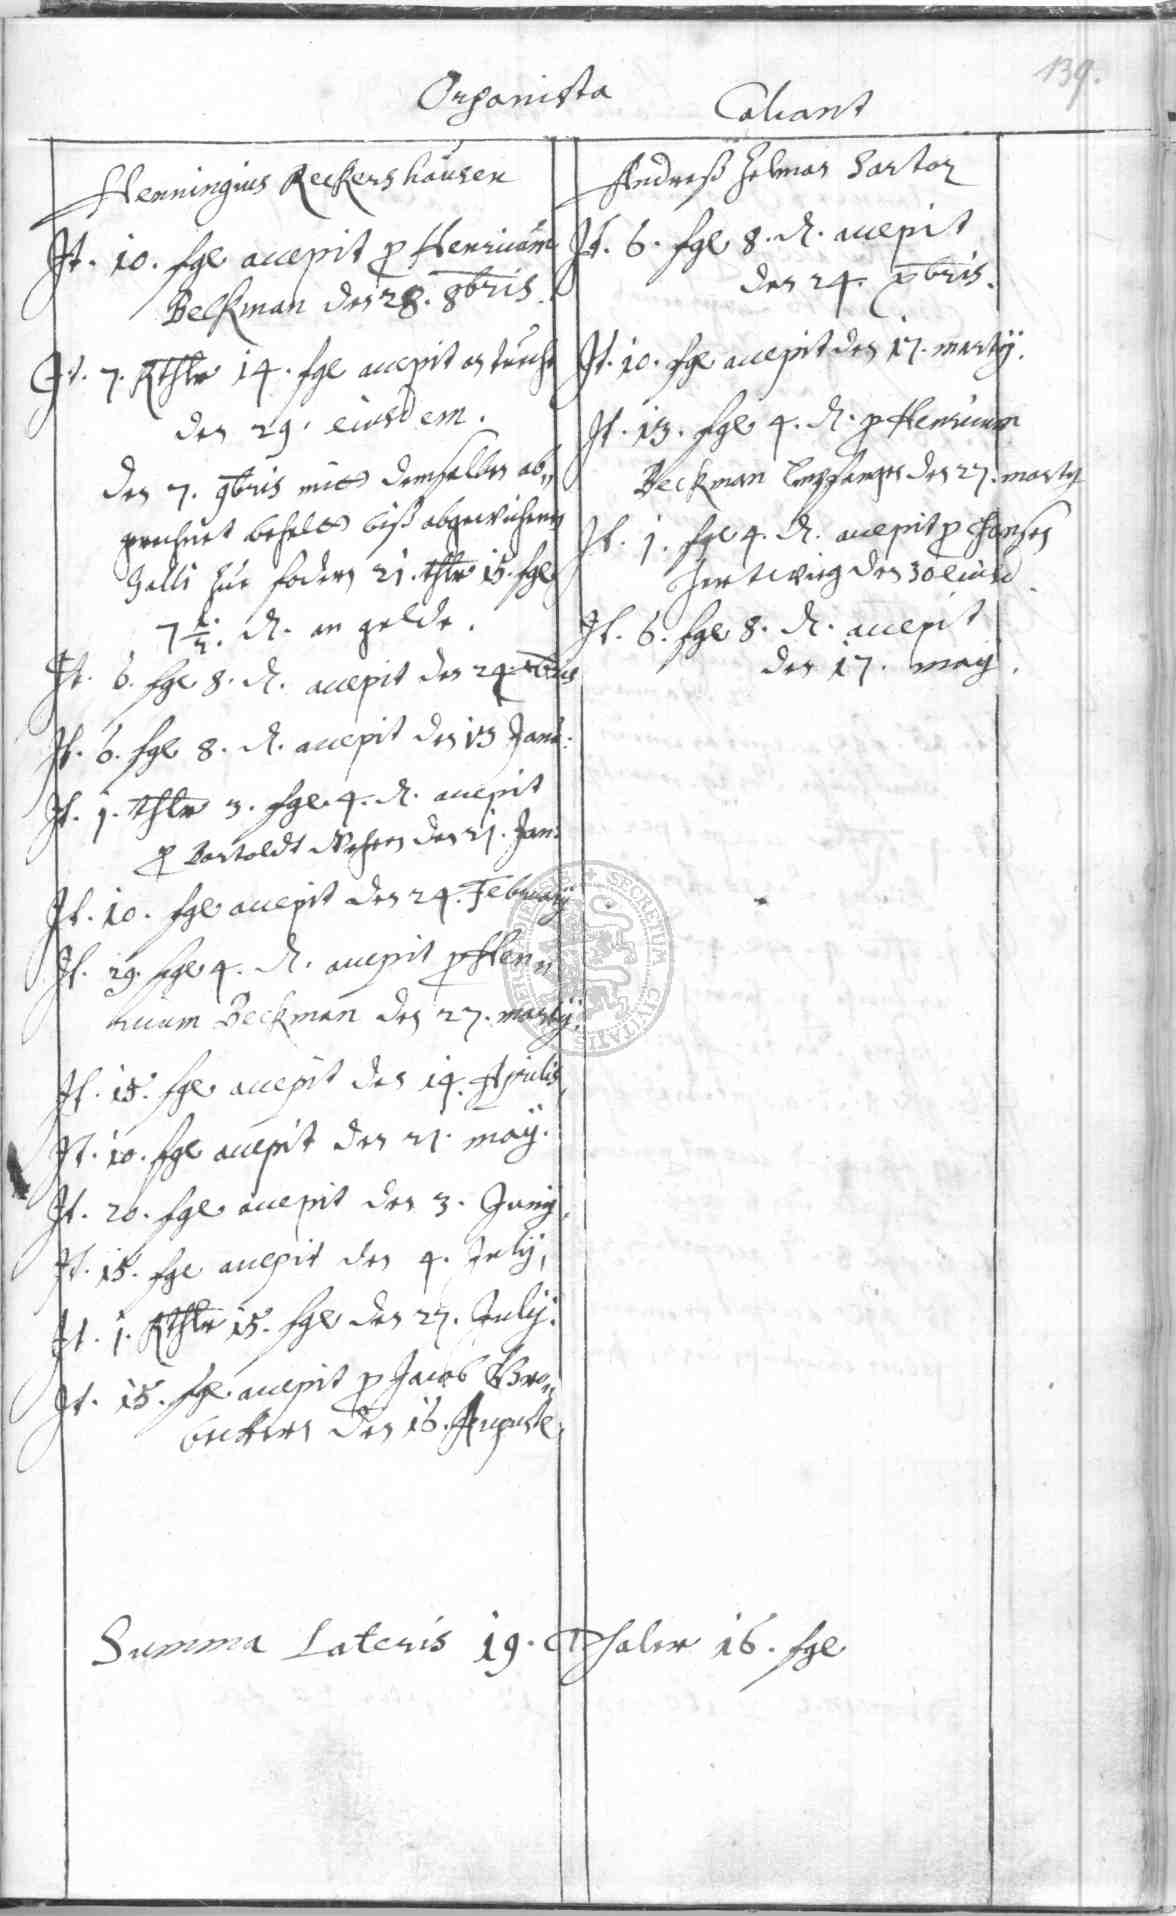 139.
Organista
Calcant
Henningius Reckershausen
It. 10. fgl accepit p Henricum
Beckman den 28. 8bris.
It. 7. Rthlr 14. fgl accepit
den 29. eiusdem.
den 7. 9bris mitt demselben ab„
gerechnet behelt biß abgewichenen
Galli zue fodern 21. thlr 15. fgl
7 1/2. d. an gelde.
It. 6. fgl 8. d. accepit den 24. xbris
It. 6. fgl 8. d. accepit den 13 Janu:
It. 1. thlr 3. fgl. 4. d. accepit
p Bartoldt den 21. Jan:
It. 10. fgl accepit den 24. February
It. 29. fgl 4. d. accepit p Hen„
ricum Beckman den 27. martij.
It. 15. fgl accepit den 14. Aprilis,
It. 10. fgl accepit den 21. maij.
It. 20. fgl accepit den 3. Junij,
It. 15. fgl accepit den 4. Julij,
It. 1. Rthlr 15. fgl den 27. Julij:
It. 15. fgl. accepit p Jacob Bro„
beckern den 16. Auguste,
Andreß Helmas Sartor
It. 6. fgl 8. d. accepit
den 24. xbris.
It. 10. fgl accepit den 17. martij.
It. 13. fgl 4. d. p Henricum
Beckman Empfangen den 27. martij
It. 1. fgl 4. d. accepit p Hansen
Hertwieg den 30 eiusd.
It. 6. fgl 8. d. accepit
den 17. may.
SECRETUM CIVITATIS
Summa Lateris 19. Thaler 16. fgl